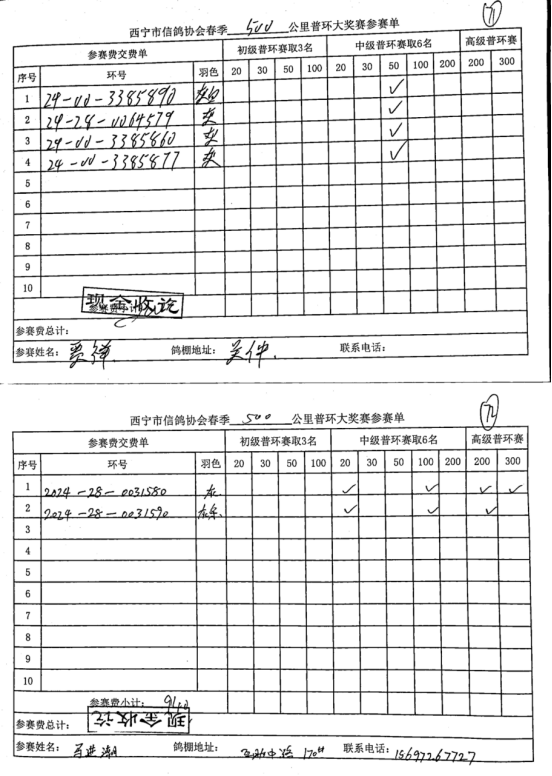 71
西宁市信鸽协会春季 500 公里普环大奖赛参赛单
参赛费交费单 初级普环赛取3名 中级普环赛取6名 高级普环赛
序号 环号 羽色 20 30 50 100 20 30 50 100 200 200 300
1 24-00-3385890 ✓
2 24-28-0064579 灰 ✓
3 24-00-3385860 灰 ✓
4 24-00-3385877 灰 ✓
5
6
7
8
9
10
参赛费小计: 现金收讫
参赛费总计:
参赛姓名: 鸽棚地址: 联系电话:
72
西宁市信鸽协会春季 500 公里普环大奖赛参赛单
参赛费交费单 初级普环赛取3名 中级普环赛取6名 高级普环赛
序号 环号 羽色 20 30 50 100 20 30 50 100 200 200 300
1 2024-28-0031580 灰 ✓ ✓ ✓ ✓
2 2024-28-0031590 ✓ ✓ ✓
3
4
5
6
7
8
9
10
参赛费小计:
参赛费总计: 现金收讫
参赛姓名: 马进潮 鸽棚地址: 互助中路170# 联系电话: 15697267727